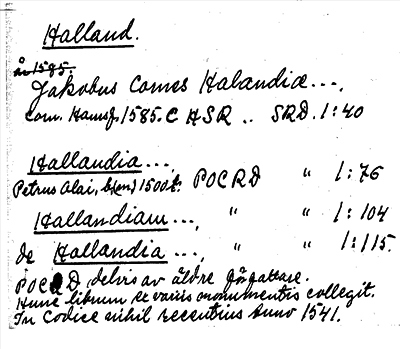 Halland.
år 1585.
Jakobus Comes Halandiæ...,
Com. Hamsf. 1585. C HSR .. SRD. 1:40
Hallandia...,
Petrus Olai, b(en) 1500t. POCRD " 1:76
Hallandiam..., " " 1:104
de Hallandia..., " " 1:115.
POCRD delvis av äldre författare.
Hunc librum ex variis monumentis collegit.
In Codice nihil recentius Anno 1541.